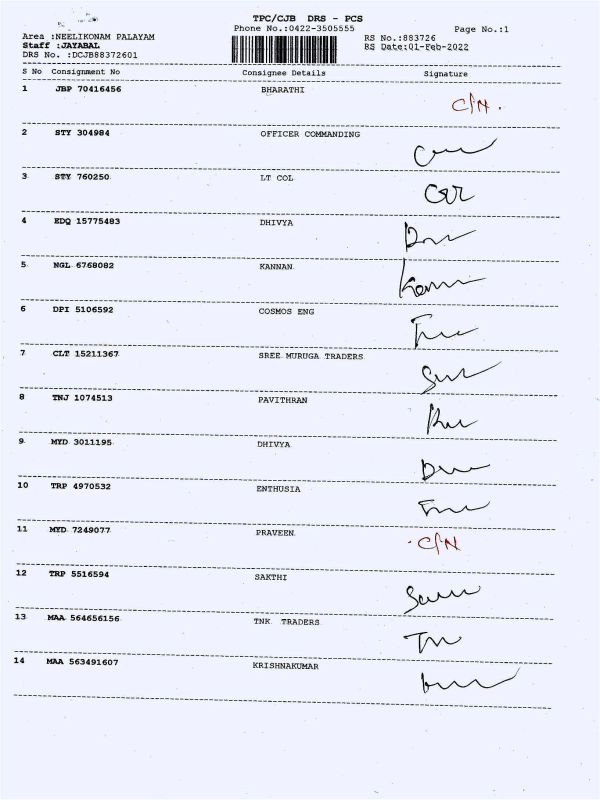 TPC/CJB DRS - PCS
Phone No.:0422-3505555 Page No.:1
Area :NEELIKONAM PALAYAM RS No.:883726
Staff :JAYABAL RS Date:01-Feb-2022
DRS No. :DCJB88372601
S No Consignment No Consignee Details Signature
1 JBP 70416456 BHARATHI C/N.
2 STY 304984 OFFICER COMMANDING
3 STY 760250 LT COL
4 EDQ 15775483 DHIVYA
5 NGL 6768082 KANNAN
6 DPI 5106592 COSMOS ENG
7 CLT 15211367 SREE MURUGA TRADERS
8 TNJ 1074513 PAVITHRAN
9 MYD 3011195 DHIVYA
10 TRP 4970532 ENTHUSIA
11 MYD 7249077 PRAVEEN C/N
12 TRP 5516594 SAKTHI
13 MAA 564656156 TNK TRADERS
14 MAA 563491607 KRISHNAKUMAR